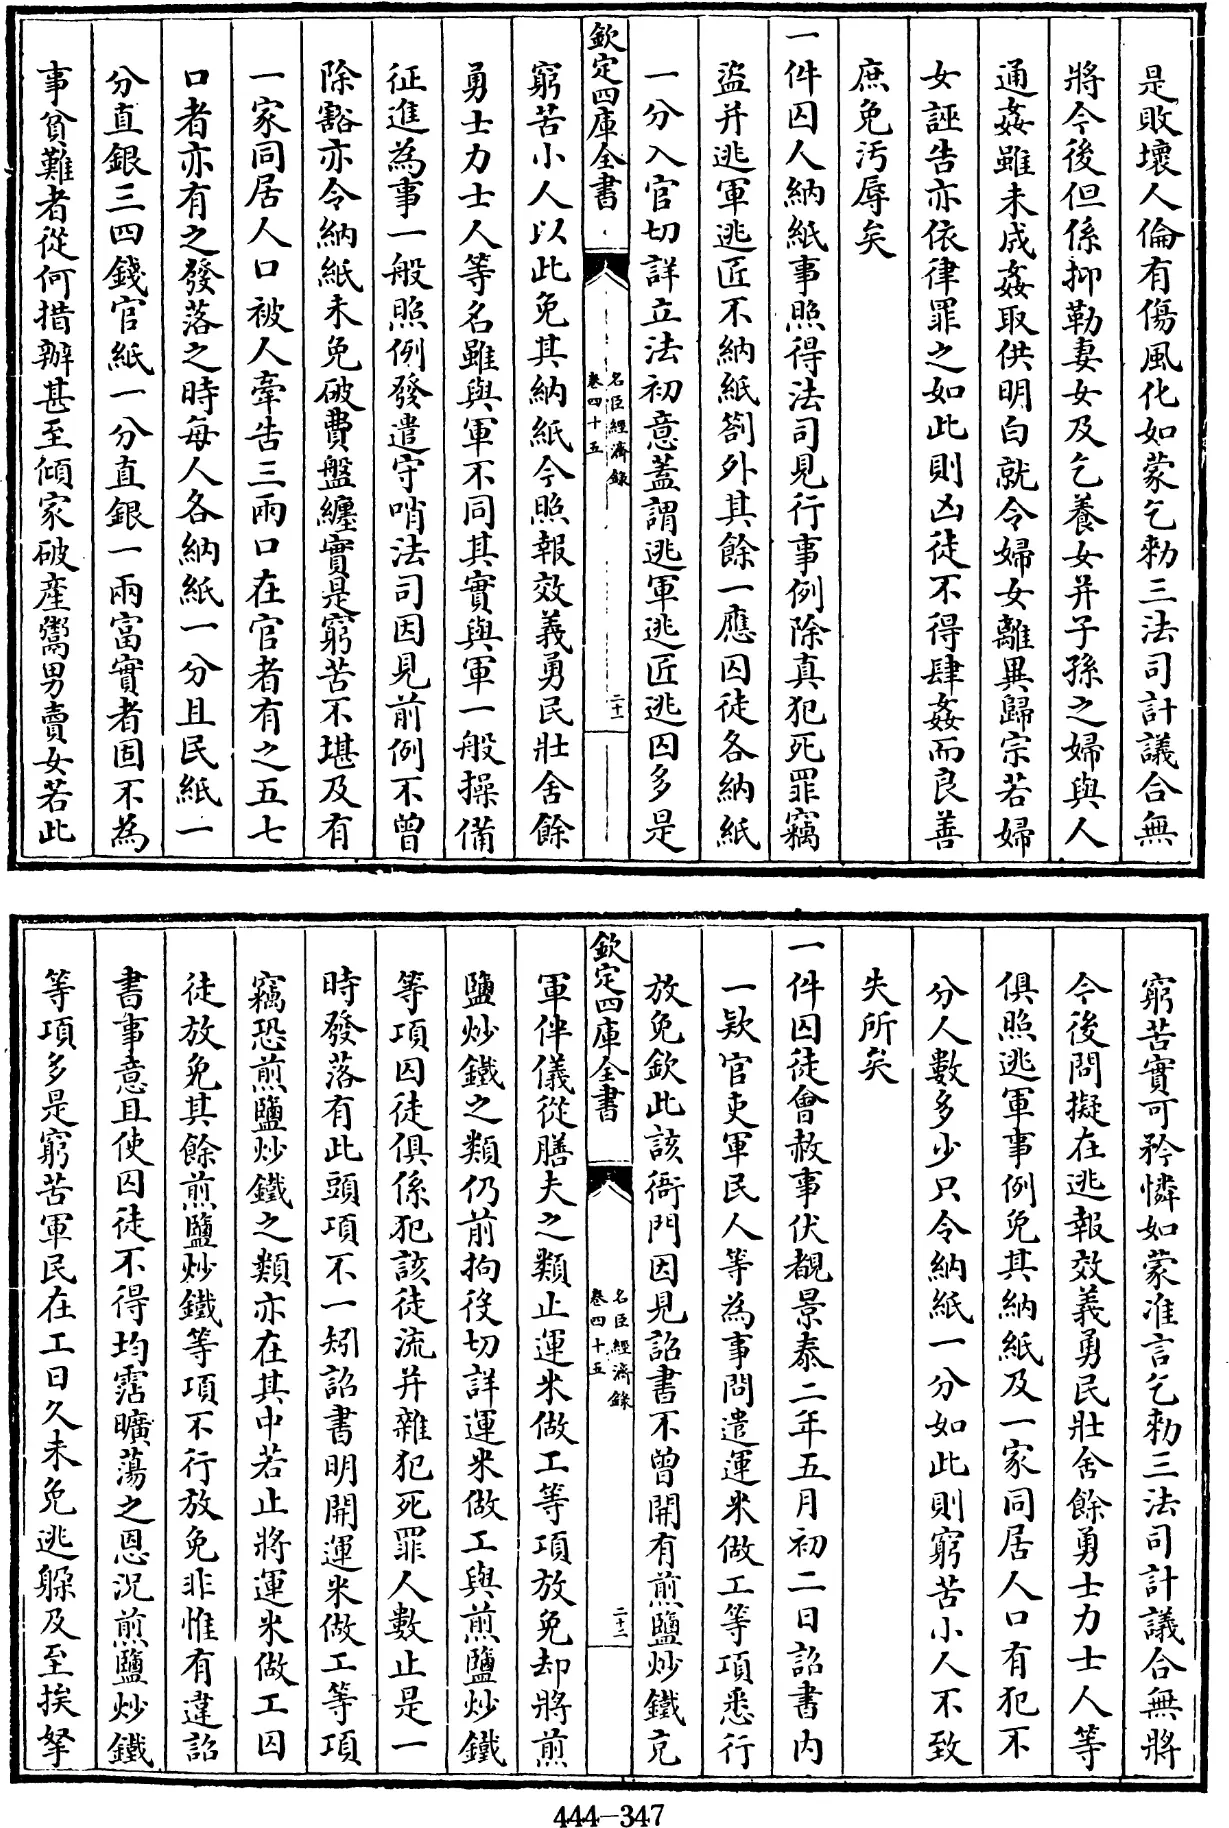 是敗壞人倫有傷風化如蒙乞勑三法司計議合無
將今後但係抑勒妻女及乞養女并子孫之婦與人
通姦雖未成姦取供明白就令婦女離異歸宗若婦
女誣告亦依律罪之如此則凶徒不得肆姦而良善
庶免汚辱矣
一件囚人納紙事照得法司見行事例除真犯死罪竊
盜并逃軍逃匠不納紙劄外其餘一應囚徒各納紙
一分入官切詳立法初意蓋謂逃軍逃匠逃囚多是
欽定四庫全書
名臣經濟錄
卷四十五
二十一
窮苦小人以此免其納紙今照報效義勇民壯舍餘
勇士力士人等名雖與軍不同其實與軍一般操備
征進為事一般照例發遣守哨法司因見前例不曾
除豁亦令納紙未免破費盤纏實是窮苦不堪及有
一家同居人口被人牽告三兩口在官者有之五七
口者亦有之發落之時每人各納紙一分且民紙一
分直銀三四錢官紙一分直銀一兩富實者固不為
事貧難者從何措辦甚至傾家破產鬻男賣女若此
窮苦實可矜憐如蒙准言乞勑三法司計議合無將
今後問擬在逃報效義勇民壯舍餘勇士力士人等
俱照逃軍事例免其納紙及一家同居人口有犯不
分人數多少只令納紙一分如此則窮苦小人不致
失所矣
一件囚徒會赦事伏覩景泰二年五月初二日詔書内
一欵官吏軍民人等為事問遣運米做工等項悉行
放免欽此該衙門因見詔書不曾開有煎鹽炒鐵充
欽定四庫全書
名臣經濟錄
卷四十五
二十二
軍伴儀從膳夫之類止運米做工等項放免却將煎
鹽炒鐵之類仍前拘役切詳運米做工與煎鹽炒鐵
等項囚徒俱係犯該徒流并雜犯死罪人數止是一
時發落有此頭項不一矧詔書明開運米做工等項
竊恐煎鹽炒鐵之類亦在其中若止將運米做工囚
徒放免其餘煎鹽炒鐵等項不行放免非惟有違詔
書事意且使囚徒不得均霑曠蕩之恩況煎鹽炒鐵
等項多是窮苦軍民在工日久未免逃躲及至挨拏
444-347